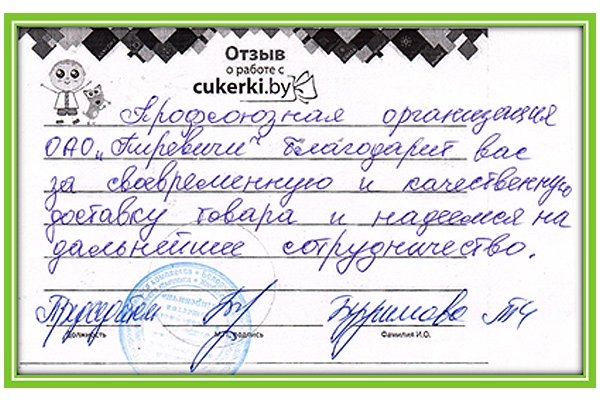 Отзыв
о работе с
cukerki.by
Профсоюзная организация
ОАО „Пиревичи" благодарит вас
за своевременную и качественную
доставку товара и надеемся на
дальнейшее сотрудничество.
должность М.П. подпись Фамилия И.О.